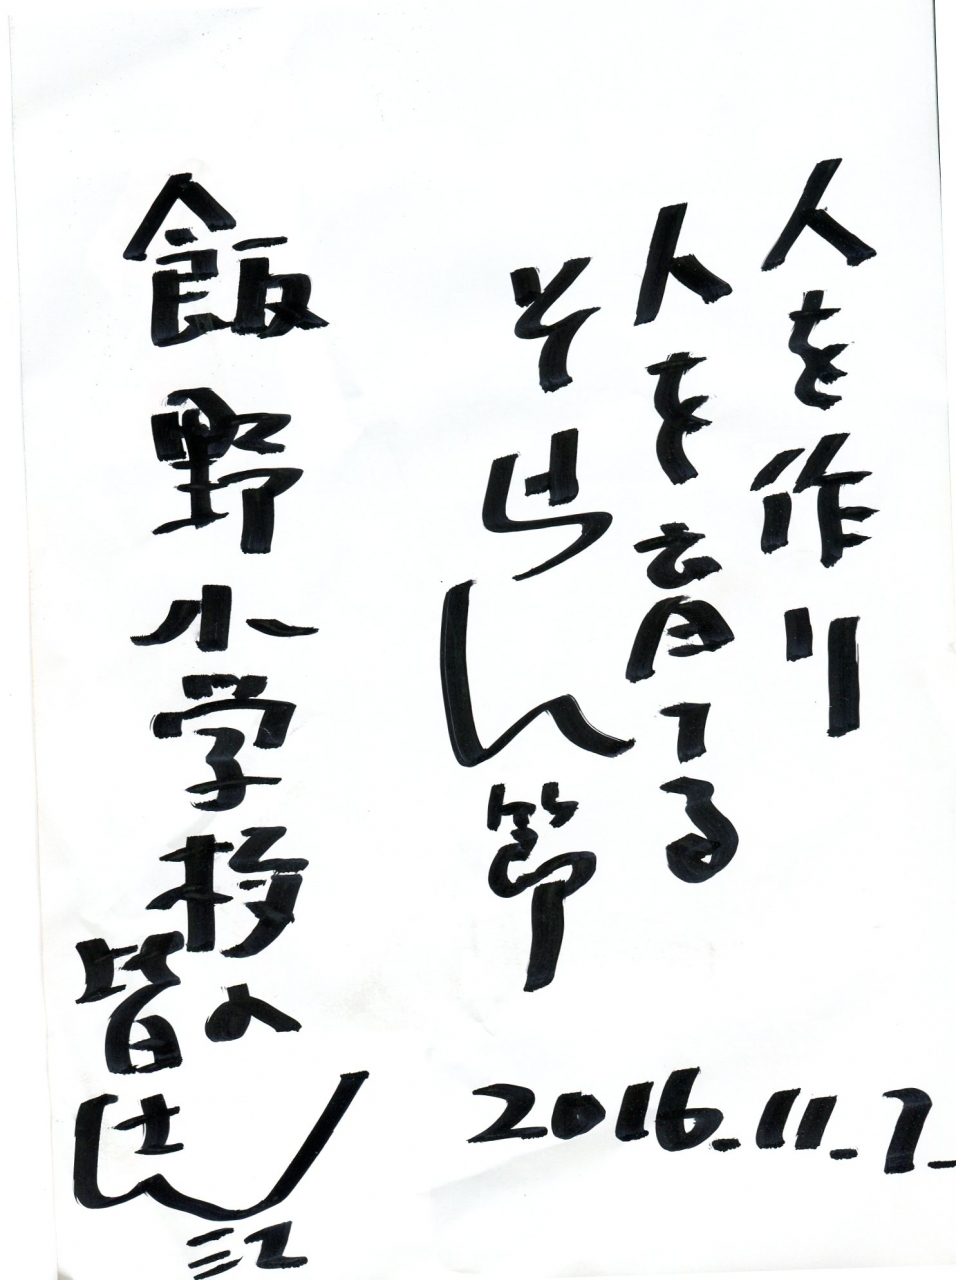 人を作り
人を育てる
そらん節
2016.11.7.
飯野小学校の
皆さん江